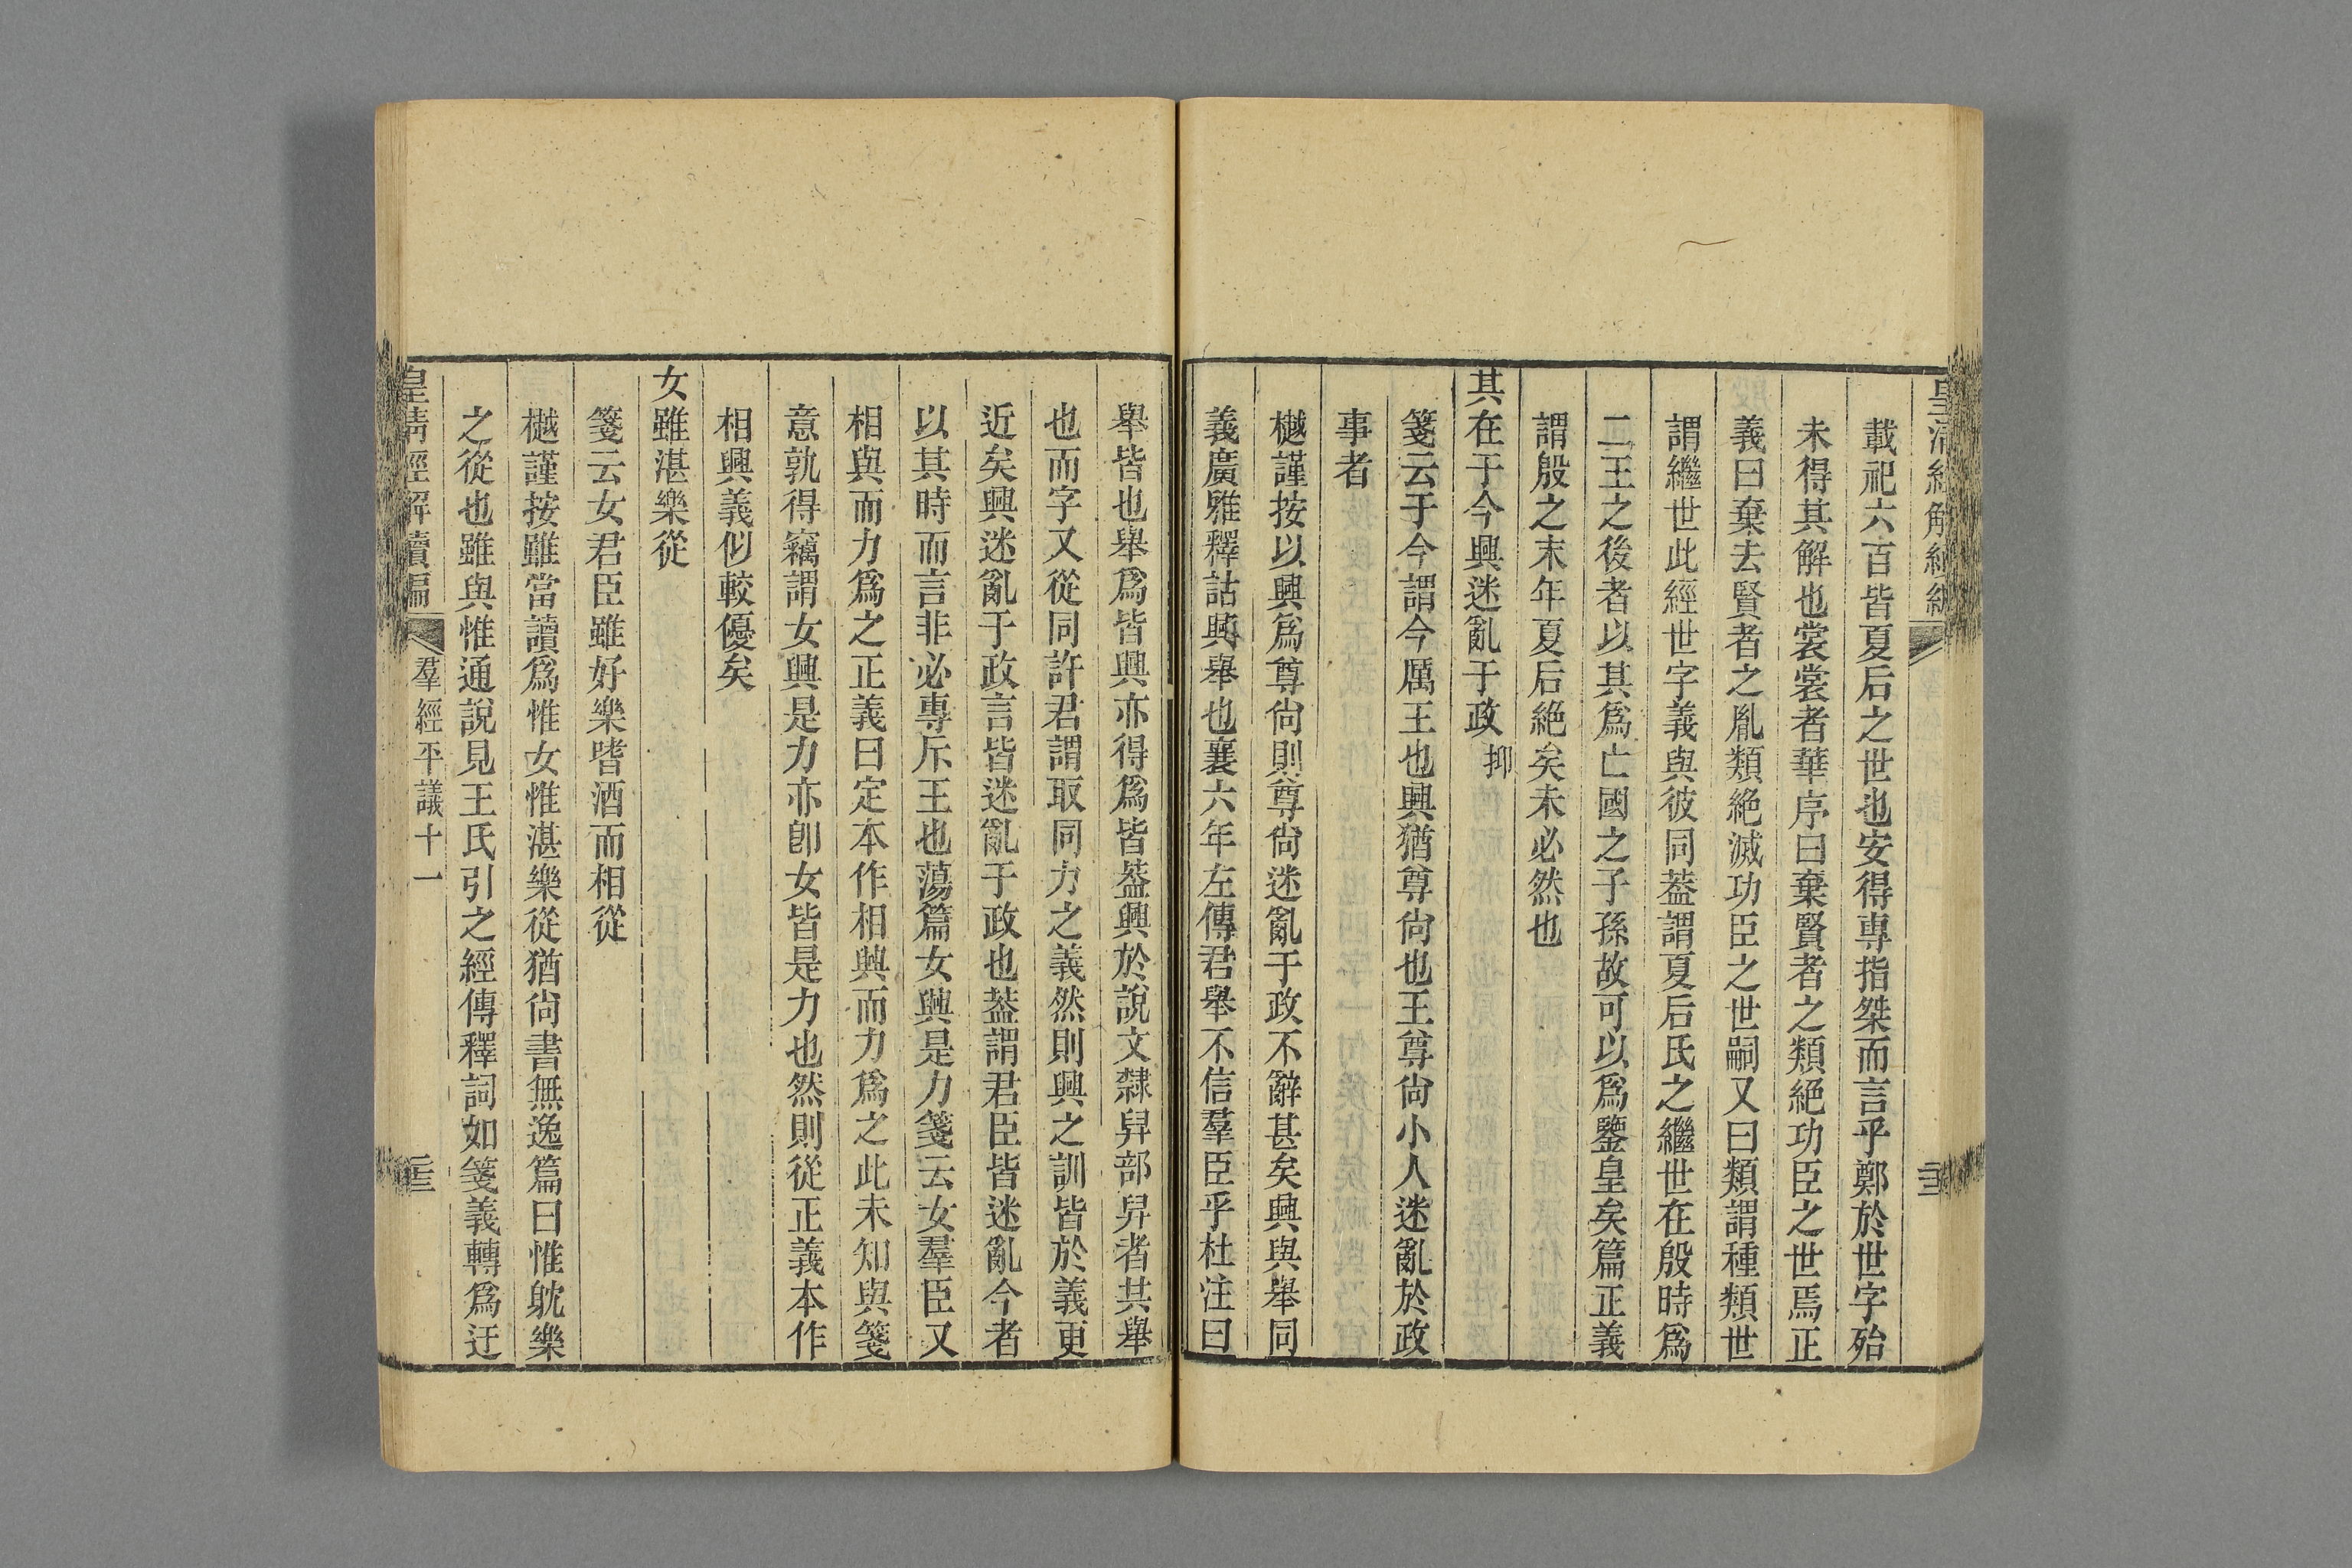 皇清經解續編
三十三
載祀六百皆夏后之世也安得專指桀而言乎鄭於世字殆
未得其解也裳裳者華序曰棄賢者之類絕功臣之世焉正
義曰棄去賢者之胤類絕滅功臣之世嗣又曰類謂種類世
謂繼世此經世字義與彼同葢謂夏后氏之繼世在殷時爲
二王之後者以其爲亡國之子孫故可以爲鑒皇矣篇正義
謂殷之末年夏后絕矣未必然也
其在于今興迷亂于政 抑
箋云于今謂今厲王也興猶尊尙也王尊尙小人迷亂於政
事者
樾謹按以興爲尊尙則尊尙迷亂于政不辭甚矣興與舉同
義廣雅釋詁興舉也襄六年左傳君舉不信羣臣乎杜注曰
舉皆也舉爲皆興亦得爲皆葢興於說文隸舁部舁者共舉
也而字又從同許君謂取同力之義然則興之訓皆於義更
近矣興迷亂于政言皆迷亂于政也葢謂君臣皆迷亂今者
以其時而言非必專斥王也蕩篇女興是力箋云女羣臣又
相與而力爲之正義曰定本作相興而力爲之此未知與箋
意孰得竊謂女興是力亦卽女皆是力也然則從正義本作
相興義似較優矣
女雖湛樂從
箋云女君臣雖好樂嗜酒而相從
樾謹按雖當讀爲惟女惟湛樂從猶尙書無逸篇曰惟躭樂
之從也雖與惟通說見王氏引之經傳釋詞如箋義轉爲迂
皇清經解續編
羣經平議十一
三十三